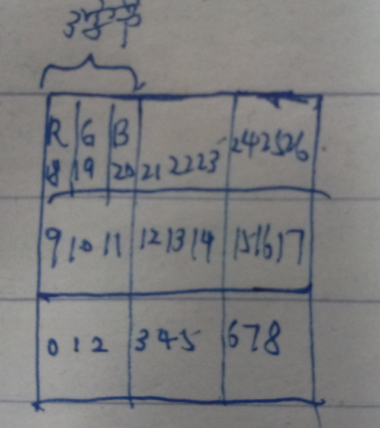 3字节
R G B
18 19 20 21 22 23 24 25 26
9 10 11 12 13 14 15 16 17
0 1 2 3 4 5 6 7 8